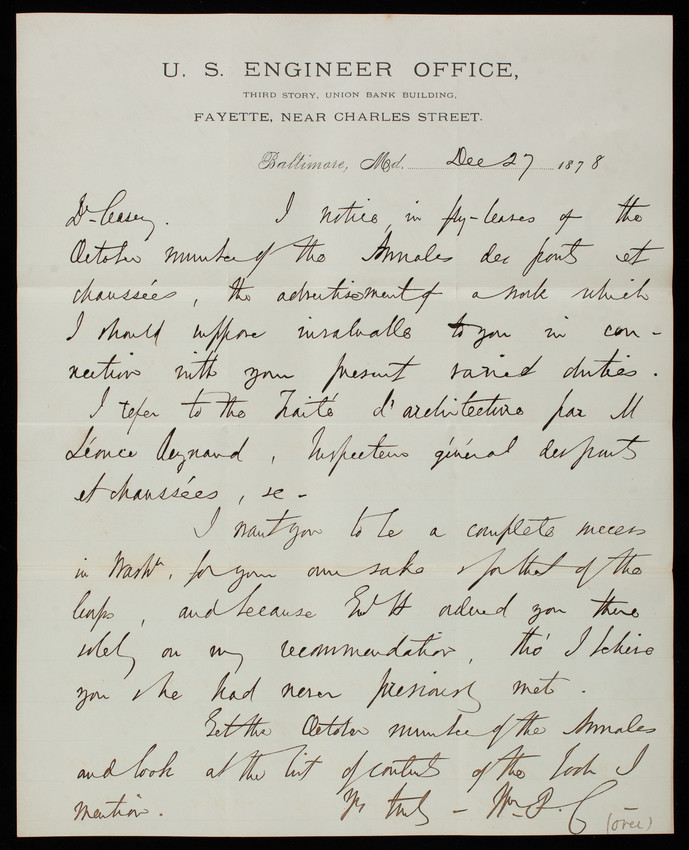 U. S. ENGINEER OFFICE,
THIRD STORY, UNION BANK BUILDING,
FAYETTE, NEAR CHARLES STREET.
Baltimore, Md. Dec 27 1878
Dr Casey. I notice in fly-leaves of the
October number of the Annales des ponts et
chaussées, the advertisement of a work which
I should suppose invaluable to you in con-
nection with your present varied duties.
I refer to the Traité d'architecture par M
Léonce Reynaud, Inspecteur général des ponts
et chaussées, &c -
I want you to be a complete success
in Washn, for your own sake & for that of the
Corps, and because Genl H ordered you there
solely on my recommendation, tho' I believe
you & he had never previously met.
Get the October number of the Annales
and look at the list of contents of the book I
mention. Yrs truly - Wm P. C
(over)